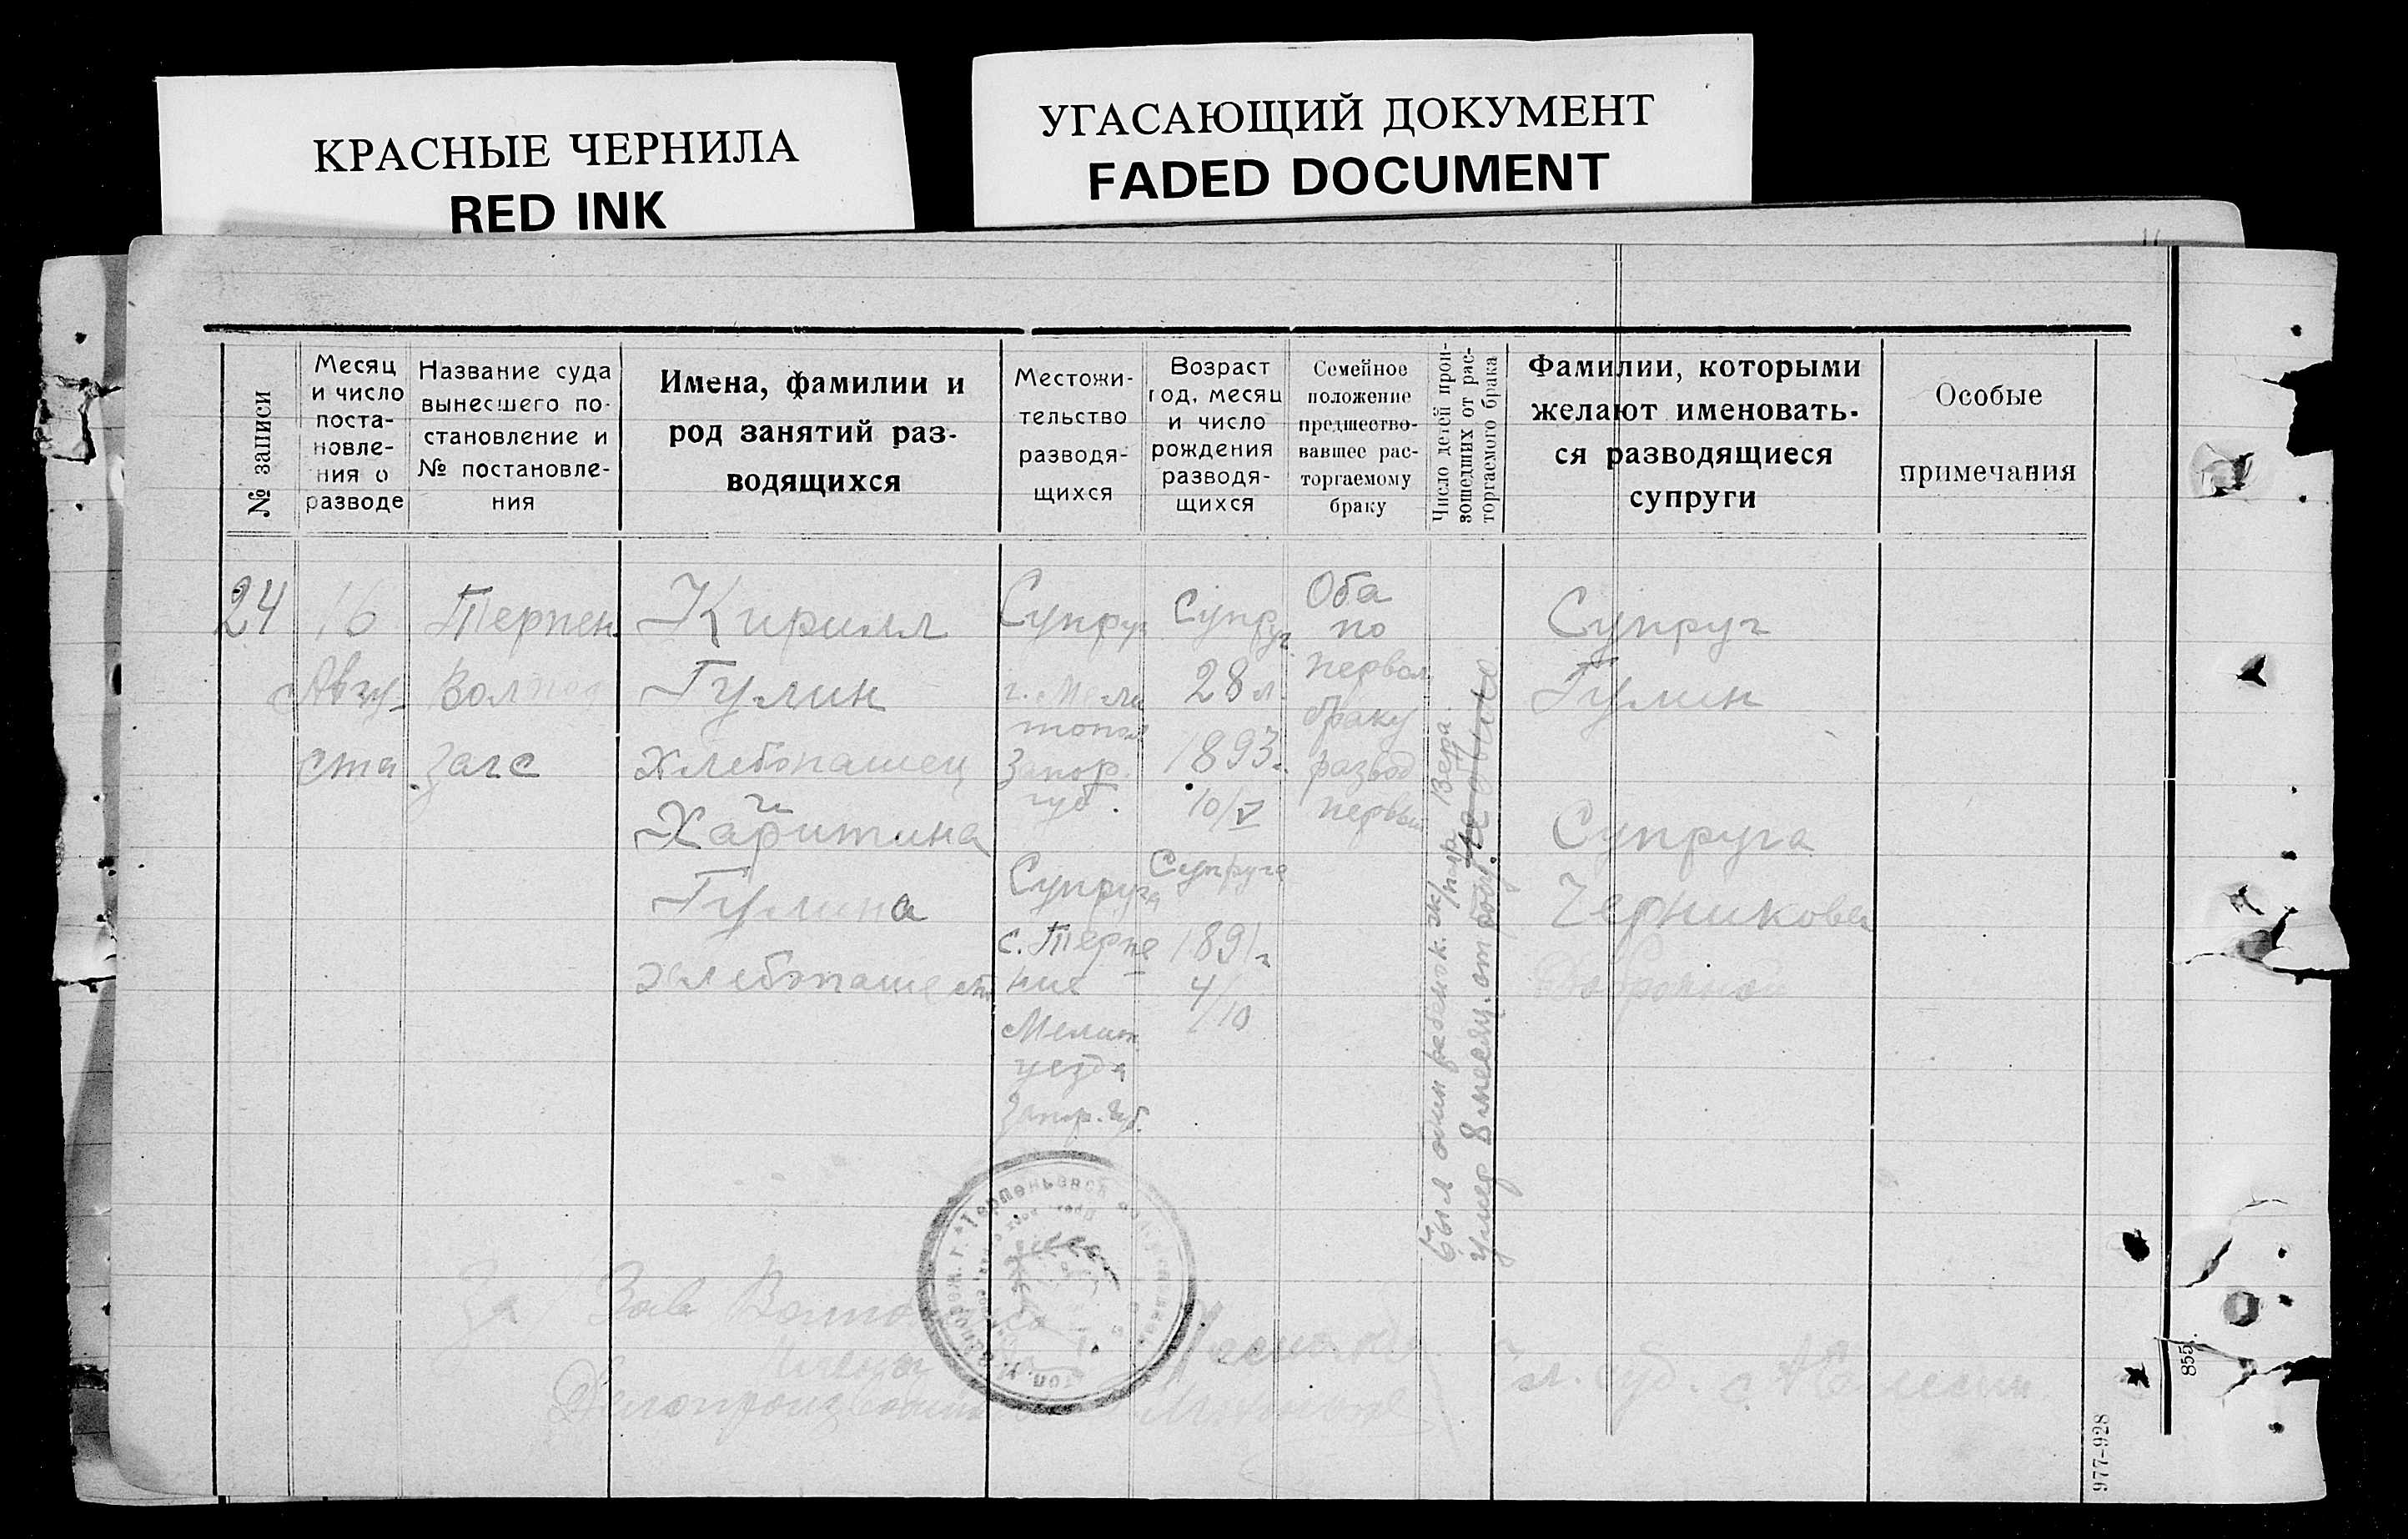 КРАСНЫЕ ЧЕРНИЛА
RED INK
УГАСАЮЩИЙ ДОКУМЕНТ
FADED DOCUMENT
№ записи
Месяц
и число
поста-
новле-
ния о
разводе
Название суда
вынесшего по-
становление и
№ постановле-
ния
Имена, фамилии и
род занятий раз-
водящихся
Местожи-
тельство
разводя-
щихся
Возраст
год, месяц
и число
рождения
разводя-
щихся
Семейное
положение
предшество-
вавшее рас-
торгаемому
браку
Число детей прои-
зошедших от рас-
торгаемого брака
Фамилии, которыми
желают именовать-
ся разводящиеся
супруги
Особые
примечания
24
16
Авгу-
ста
Терпен
Вол
загс
Кирилл
Гулин
хлебопашец
и
Харитина
Гулина
хлебопаше
Супруг
г. Мели
топол
Запор.
губ.
Супруга
с. Терпе
ние
Мелит.
уезда
Запор. губ.
Супруг
28 л.
1893 г.
10/V
Супруга
1891 г
4/10
Оба
по
первом
браку
развод
первый
Был один ребенок Вера
умер 8 месяц. от роду.
Супруг
Гулин
Супруга
Черникова
За Зав
Делопроизводитель
855.
977-928